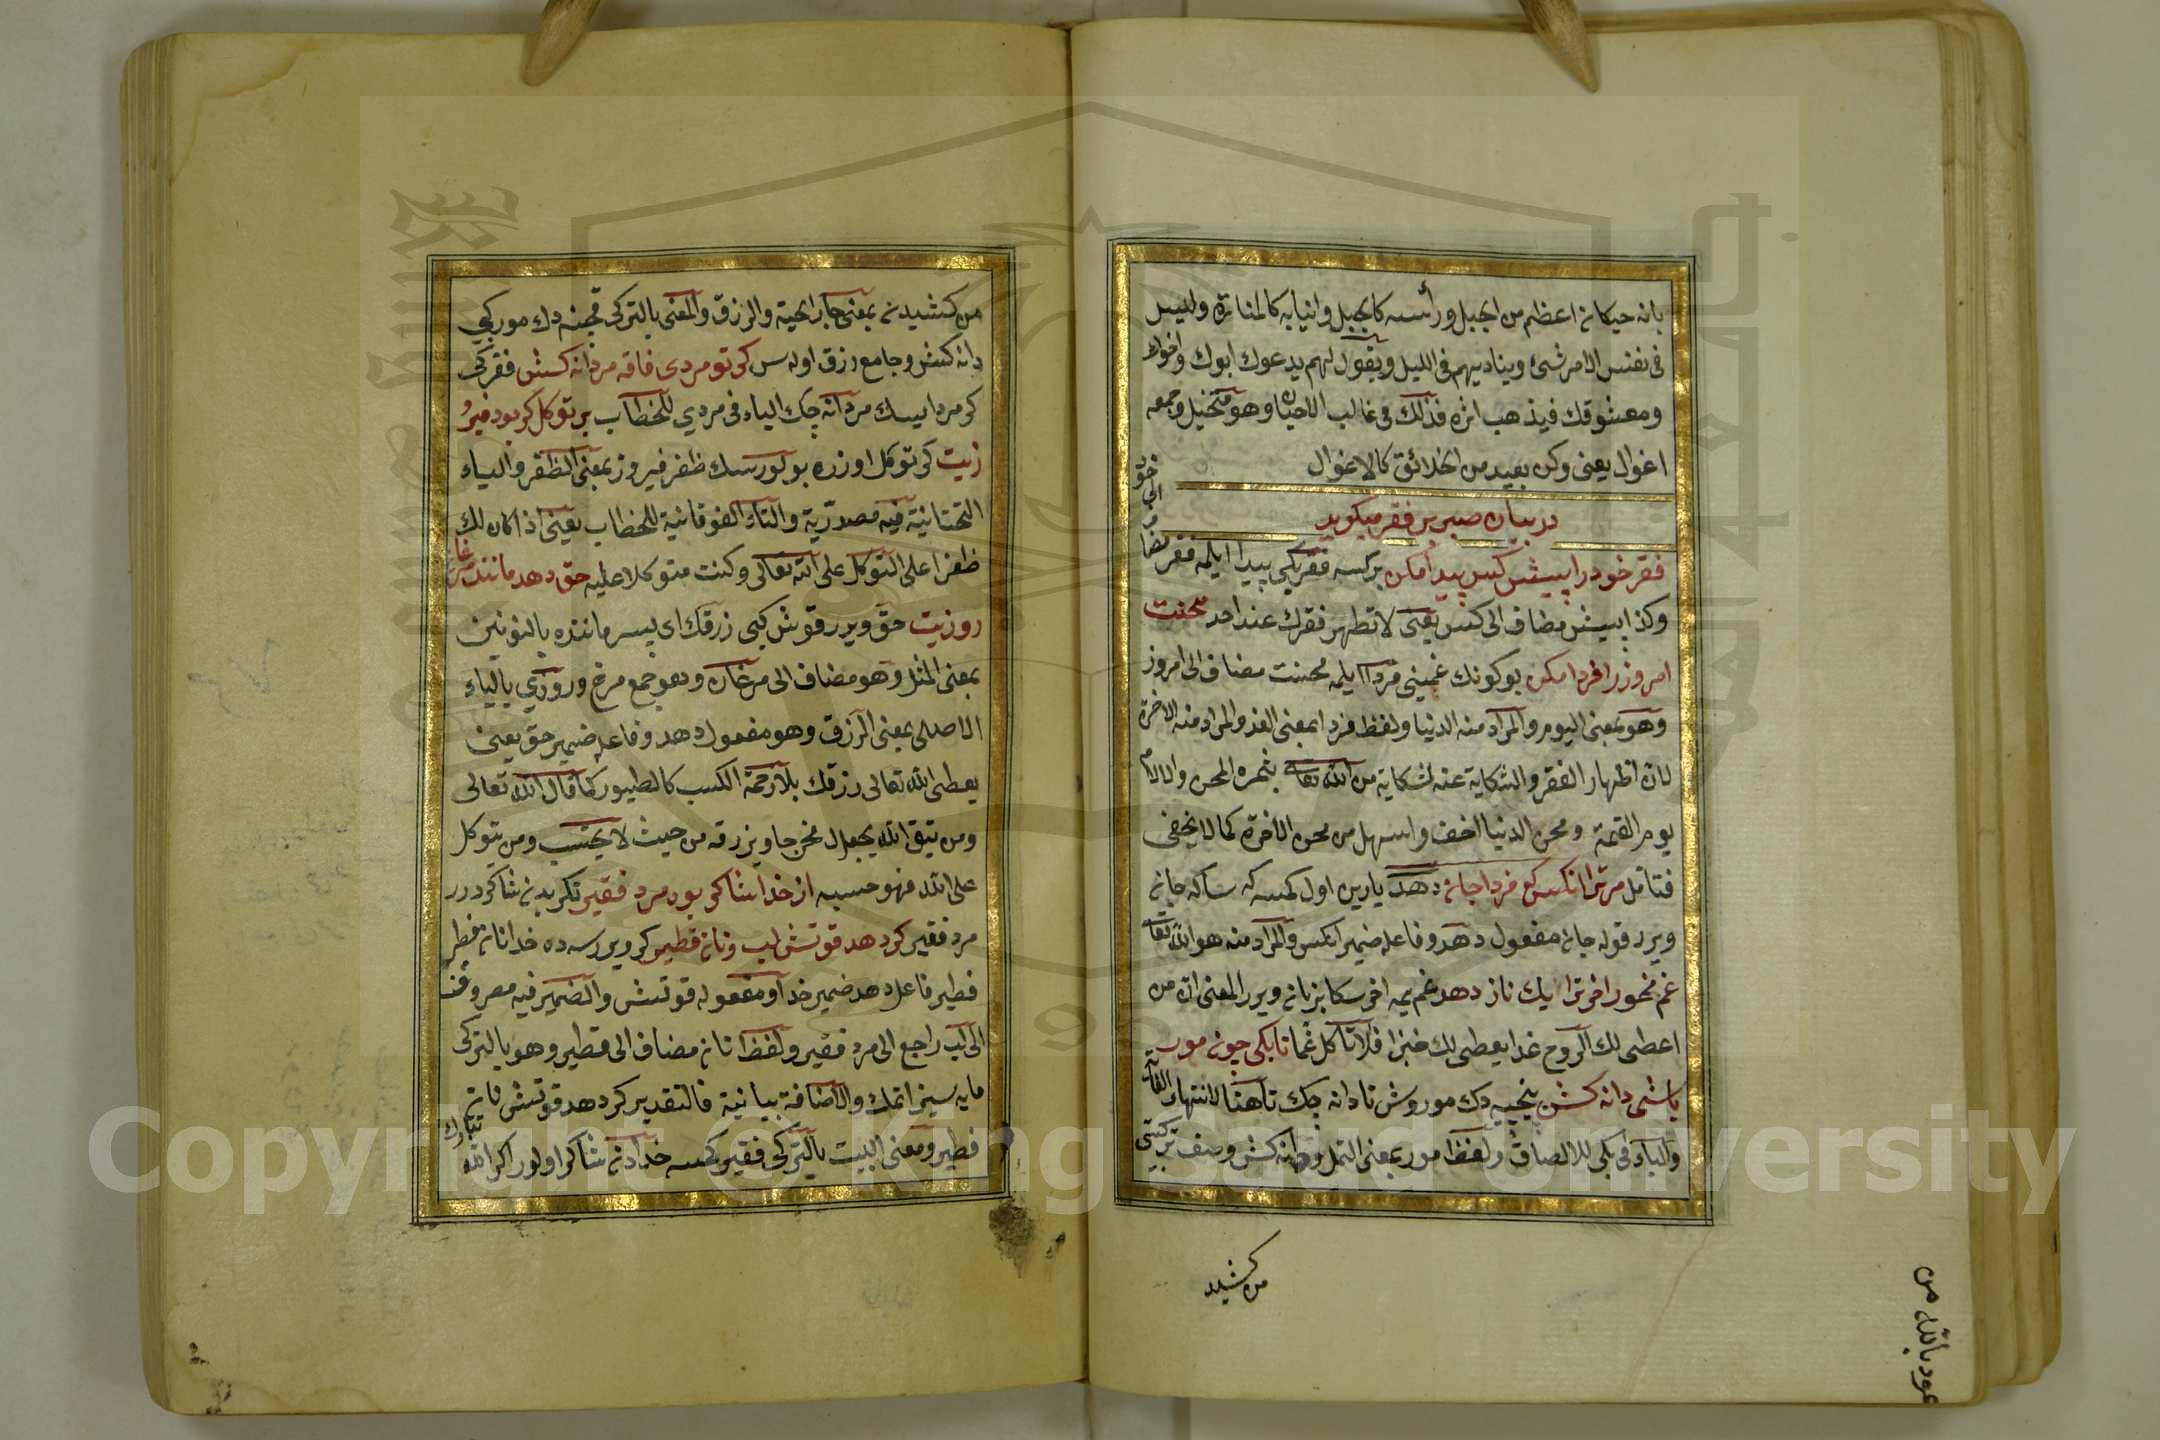 بانه حيكانه اعظم من الجبل ورأسه كالجبل وانيابه كالمناره وليس
فى نفس الامر شئ ويناديهم فى الليل ويقول لهم يدعوك ابوك واخوك
ومعشوقك فيذهب اثره فذلك فى غالب الاحيان وهو متخيل وجمعه
اغوال يعنى وكن بعيد من الخلائق كالاغوال
در بيان صبر بر فقر ميكويد
فقر خود را پيش كس پيدا مكن بر كسه فقريكى پيدا ايلمه فقر مضا
ف الى خود
وكذا پيش مضاف الى كس يعنى لا تظهر فقرك عند احد محنت
امروز را فردا مكن بو كونك غمينى فردا ايلمه محنت مضاف الى امروز
وهو بمعنى اليوم والمراد منه الدنيا ولفظ فردا بمعنى الغد والمراد منه الاخرة
لان اظهار الفقر والشكاية عنه لشكاية من الله تعالى يثمره المحن والالام
يوم القيمة ومحن الدنيا اخف واسهل من محن الآخرة كما لا يخفى
فتأمل مر ترا انكس كه فردا جان دهد يارين اول كمسه كه سكا جان
ويرر قوله جان مفعول دهد وفاعله ضمير انكس والمراد منه هو الله تعالى
غم مخور اخر ترا يك نان دهد غم يمه اخر سكا بر نان ويرر المعنى ان من
اعطى لك الروح غدا يعطى لك خبزا فلا تأكل غما تا بكى چون مور
باشى دانه كش نيجه يه دك مور وش تا دانه چك تا هنا لانتهاء الغاية
والباء فى بكى للالصاق ولفظ مور بمعنى النمل ودانه كش وصف تركيبى
من كشيد
من كشيدن بمعنى جار الحبة والرزق والمعنى بالتركى قچنه دك مور كبى
دانه كش وجامع رزق اوله س كر تو مردى فاقه مردانه كش فقر كى
كر مرد ايسك مردانه چك الياء فى مردي للخطاب بر توكل كر بود فيرو
زيت كر توكل اوزره بولورسك ظفر فيروز بمعنى الظفر والياء
التحتانية فيه مصدرية والتاء الفوقانية للخطاب يعنى اذا كان لك
ظفرا على التوكل على الله تعالى وكنت متوكلا عليه حق دهد مانند مرغان
روزيت حق ويرر قوش كبى رزقك اى پسر ماننده بالنونين
بمعنى المثل وهو مضاف الى مرغان وهو جمع مرغ وروزي بالياء
الاصلى بمعنى الرزق وهو مفعول دهد وفاعله ضمير حق يعنى
يعطى الله تعالى رزقك بلا زحمة الكسب كالطيور كما قال الله تعالى
ومن يتق الله يجعل له مخرجا ويرزقه من حيث لا يحتسب ومن يتوكل
على الله فهو حسبه از خدا شاكر بود مرد فقير تكريدن شاكر در
مرد فقير كر دهد قوتش لب ونان فطير كر ويررسه ده خدا نان فطير
فطير فاعل دهد ضمير خدا ومفعوله قوتش والضمير فيه مصروف
الى لب راجع الى مرد فقير ولفظ نان مضاف الى فطير وهو بالتركى
مايه سيز اتمك والاضافة بيانية فالتقدير كر دهد قوتش نان
فطير ومعنى البيت بالتركى فقير كمسه خدادن شاكر اولور اكر الله
تبارك